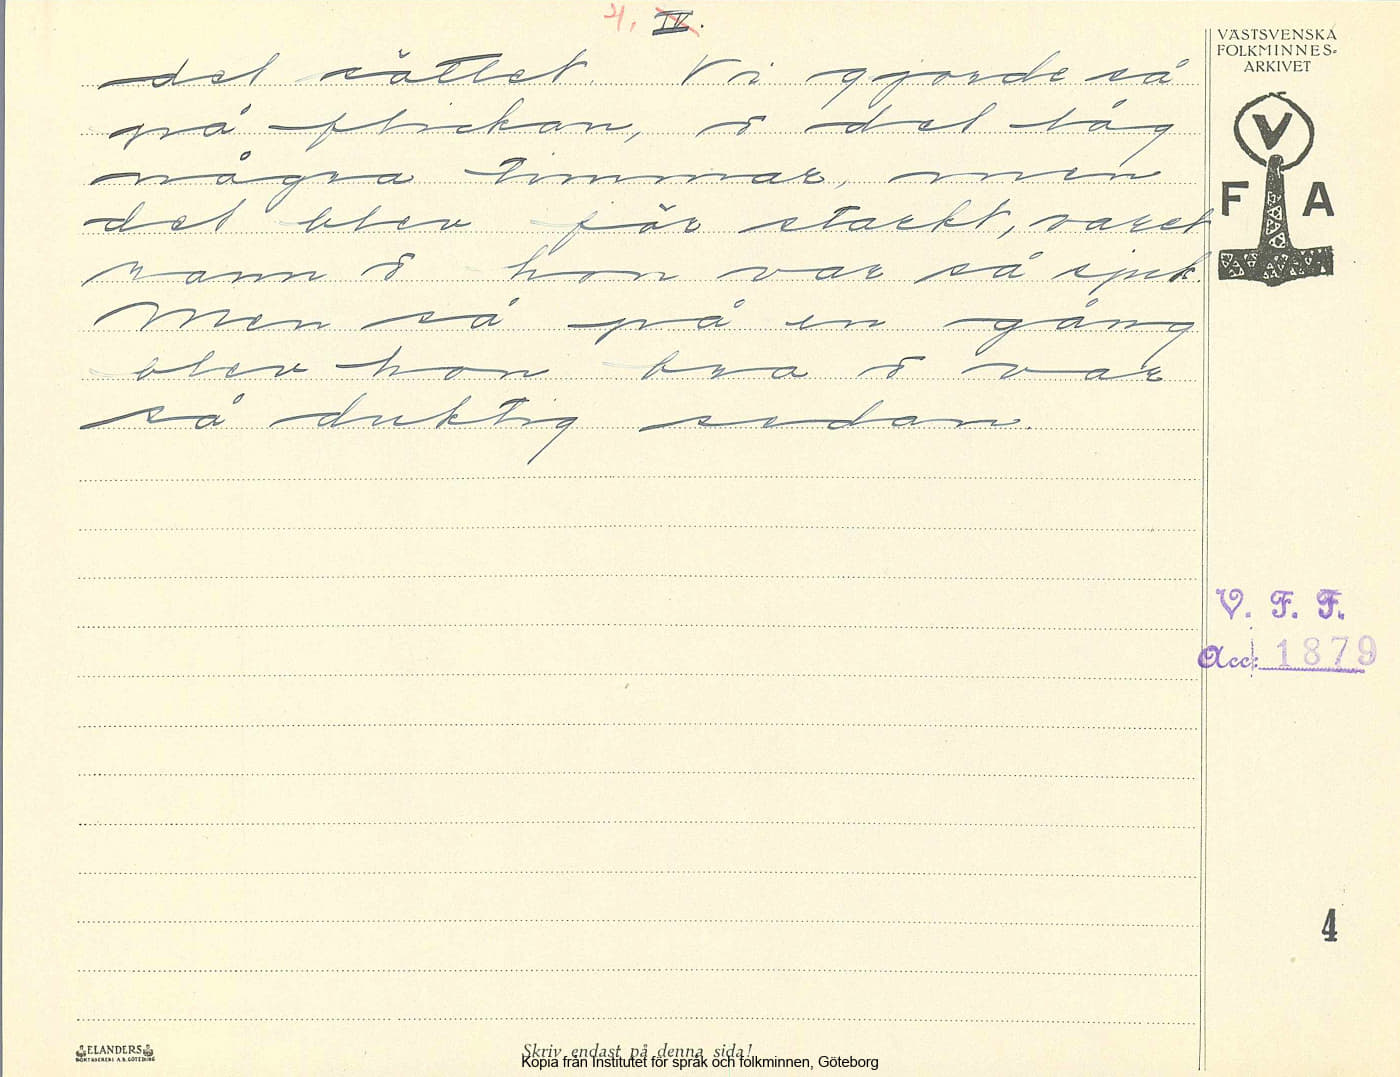 4. IV.
VÄSTSVENSKA
FOLKMINNES-
ARKIVET
V
F A
det sättet. Vi gjorde så
på flickan, o det låg
några timmar, men
det blev för starkt, varet
rann o hon var så sjuk.
Men så på en gång
blev hon bra o var
så duktig sedan.
V. F. F.
Acc: 1879
4
ELANDERS
BOKTRYCKERI A.B. GÖTEBORG
Skriv endast på denna sida!
Kopia från Institutet för språk och folkminnen, Göteborg